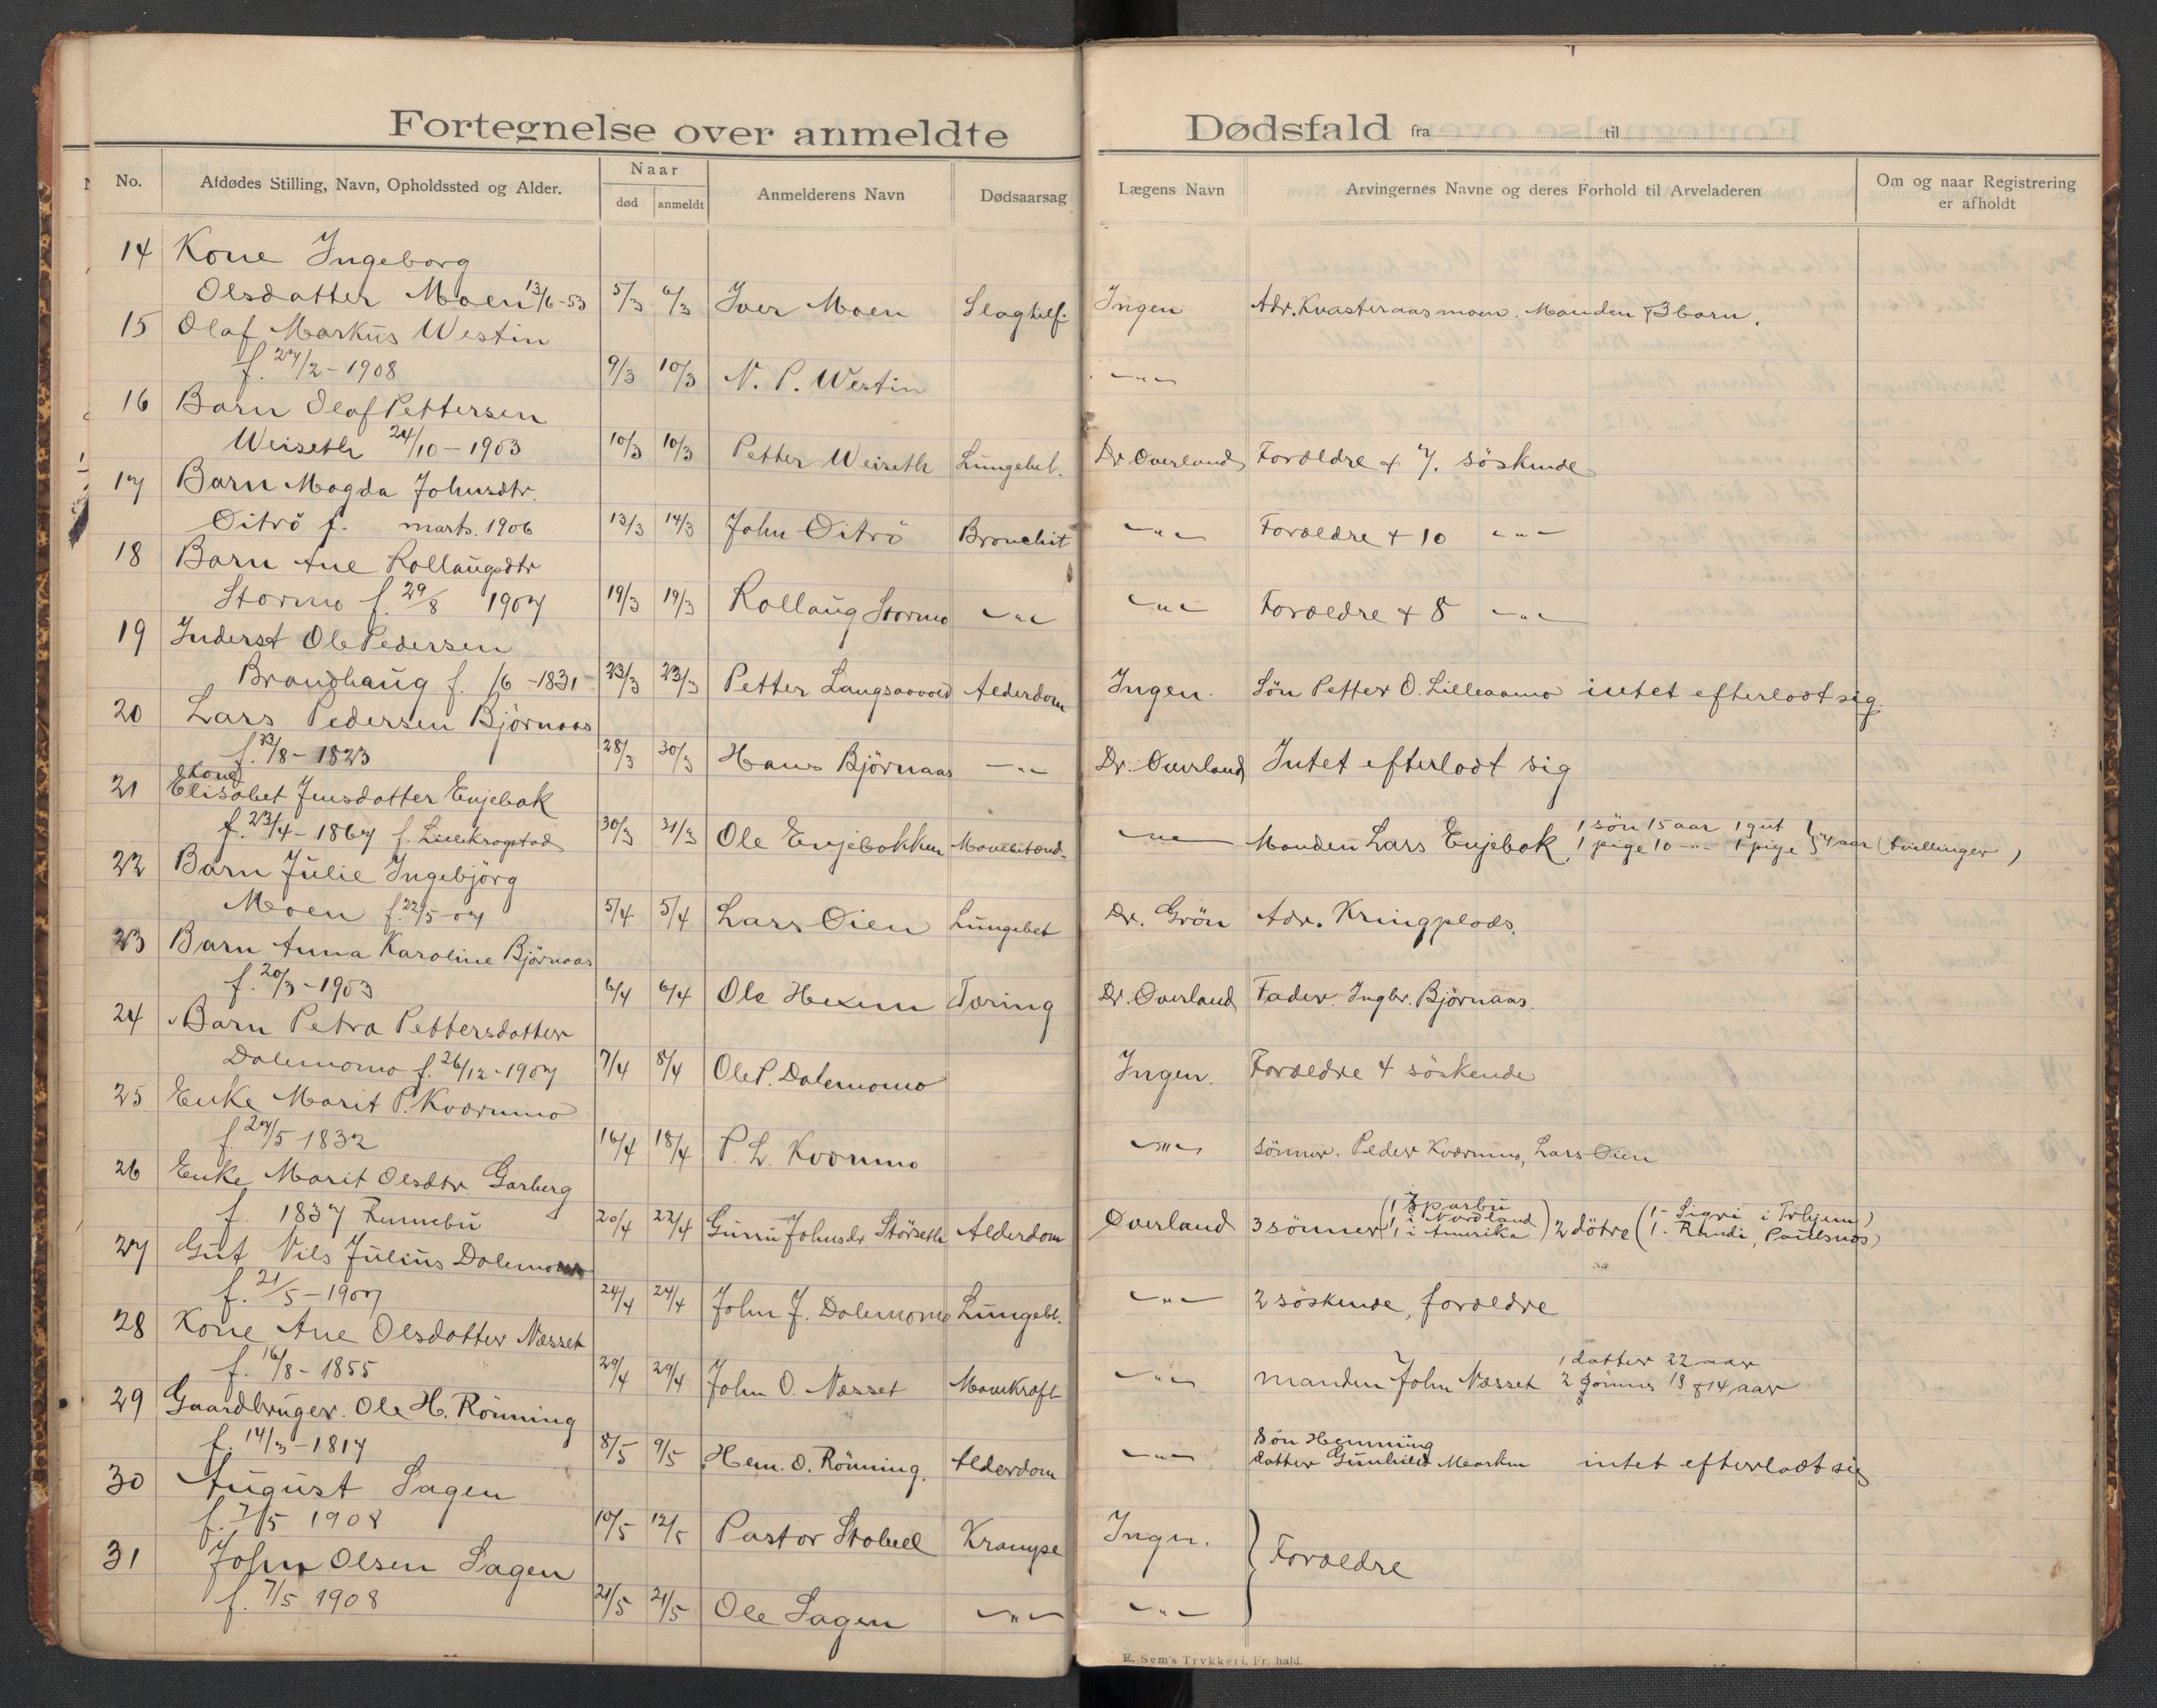 Fortegnelse over anmeldte Dødsfald fra til
No. Afdødes Stilling, Navn, Opholdssted og Alder. Naar død anmeldt Anmelderens Navn Dødsaarsag Lægens Navn Arvingernes Navne og deres Forhold til Arveladeren Om og naar Registrering er afholdt
14 Kone Ingeborg
Olsdatter Moen 13/6-53 5/3 6/3 Iver Moen Slagtilf. Ingen Adr. Kvasteraasmoen. Manden + 3 barn.
15 Olaf Markus Westin
f. 27/2-1908 9/3 10/3 N. P. Westin -"-
16 Barn Olaf Pettersen
Weiseth 24/10-1903 10/3 10/3 Petter Weiseth Lungebet. Dr Overland Forældre + 7. söskende
17 Barn Magda Johnsdtr.
Oitrö f. marts. 1906 13/3 14/3 John Oitrö Bronchit -"- Forældre + 10 -"-
18 Barn Ane Rollaugsdtr
Stormo f. 29/8 1907 19/3 19/3 Rollaug Stormo -"- -"- Forældre + 8 -"-
19 Inderst Ole Pedersen
Brandhaug f. /6-1831 23/3 23/3 Petter Langsaavold Alderdom Ingen. Sön Petter O. Lilleaamo intet efterladt sig.
20 Lars Pedersen Björnaas
f. 23/8-1823 28/3 30/3 Hans Björnaas -"- Dr. Overland Intet efterladt sig
21 Kone Elisabet Jensdatter Enjebak
f. 23/4-1867 f. Lillekrogstad 30/3 31/3 Ole Enjebakken -"- Manden Lars Enjebak 1 sön 15 aar 1 gut
1 pige 10 -"- 1 pige } 7 aar (tvillinger)
22 Barn Julie Ingebjörg
Moen f. 22/5-07 5/4 5/4 Lars Oien Lungebet Dr. Grön Adr. Kringplads.
23 Barn Anna Karoline Björnaas
f. 20/3-1903 6/4 6/4 Ole Hexem Tæring Dr. Overland Fader. Ingbr. Björnaas.
24 Barn Petra Pettersdatter
Dalemomo f. 26/12-1907 7/4 8/4 Ole P. Dalemomo Ingen. Forældre 4 söskende
25 Enke Marit P. Kværnmo
f. 27/5 1832 16/4 18/4 P. L. Kværnmo -"- Sönner. Peder Kværnmo, Lars Oien
26 Enke Marit Olsdtr Garberg
f. 1837 Rennebu 20/4 22/4 Gurru Johnsdr Störseth Alderdom Overland 3 sönner (1 Sparbu
1 i Nordland
1 i Amerika) 2 dötre (1- Sigri i Trhjem)
1- Randi, Paulsnæs)
27 Gut Nils Julius Dalemomo
f. 21/5-1907 24/4 24/4 John J. Dalemomo Lungebt. -"- 2 söskende, forældre
28 Kone Ane Olsdatter Næsset
f. 16/8-1855 29/4 29/4 John O. Næsset Mavekræft -"- manden John Næsset 1 datter 22 aar
2 sönner 18 & 14 aar
29 Gaardbruger. Ole H. Rönning
f. 14/3-1817 8/5 9/5 Hem. O. Rönning. Alderdom -"- Sön Hemming
datter Gunhild Marken intet efterladt sig
30 August Sagen
f. 7/5 1908 10/5 12/5 Pastor Krampe Ingen.
31 John Olsen Sagen } Forældre
f. 7/5 1908 21/5 21/5 Ole Sagen -"- -"-
E. Sem's Trykkeri, Fr. hald.